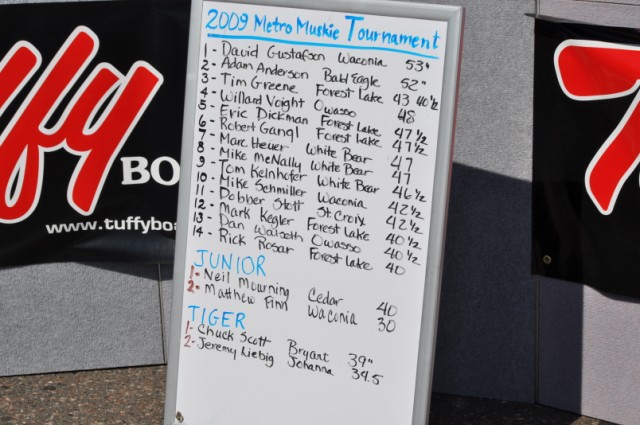 2009 Metro Muskie Tournament
1 - David Gustafson Waconia 53"
2 - Adam Anderson Bald Eagle 52"
3 - Tim Greene Forest Lake 43 40 1/2
4 - Willard Voight Owasso 48
5 - Eric Dickman Forest Lake 47 1/2
6 - Robert Gangl Forest Lake 47 1/2
7 - Marc Heuer White Bear 47
8 - Mike McNally White Bear 47
9 - Tom Kelnhofer White Bear 46 1/2
10 - Mike Schmiller Waconia 42 1/2
11 - Dobber Stott St Croix 42 1/2
12 - Mark Kegler Forest Lake 40 1/2
13 - Dan Walseth Owasso 40 1/2
14 - Rick Rosar Forest Lake 40
JUNIOR
1 - Neil Mourning Cedar 40
2 - Matthew Finn Waconia 30
TIGER
1 - Chuck Scott Bryant 39"
2 - Jeremy Liebig Johanna 34.5
ffy
BO
www.tuffyboa